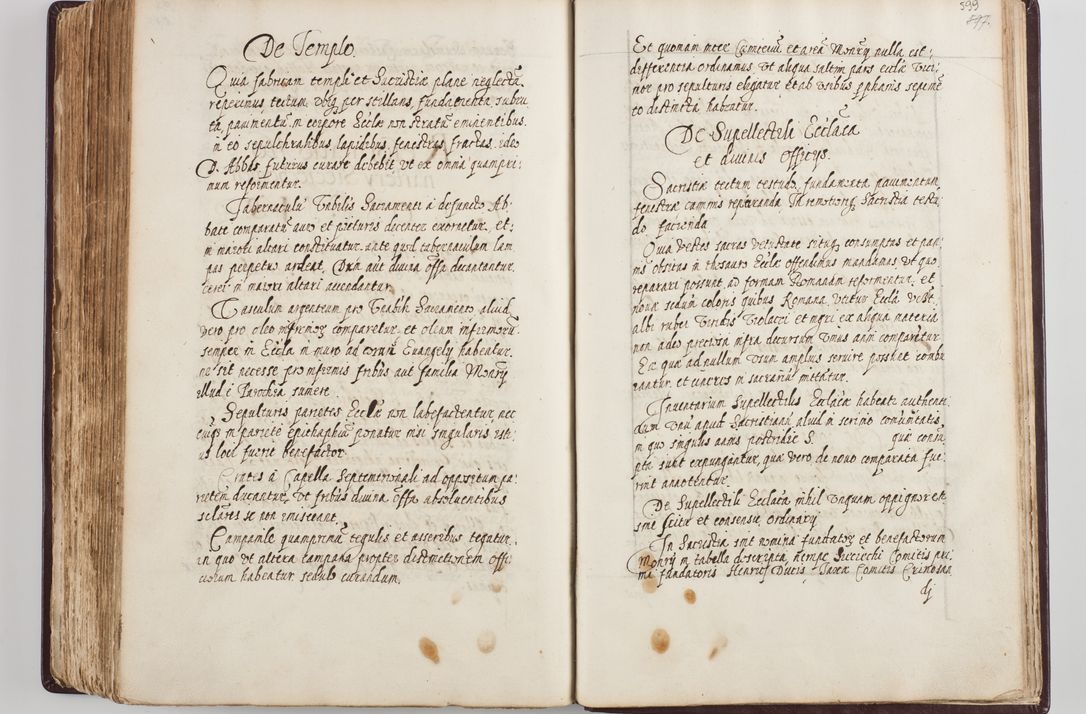 De Templo.
Quia fabricam templi et Sacristiæ plane neglectã
reperimus tectum ubiq; per stillans, fundamenta subru
ta, paumentũ in corpore Eccłæ non stratũ eminentibus
in eo sepulchralibus lapidibus, fenestras fractas, ideo
D. Abbas futurus curare debebit ut ex omnia quampri:
mum reformentur.
Tabernaculũ Vbilis Sacramenti à defuncto Ab
bate comparatũ auro et picturis decenter exornetur, et
in maiori altari constituatur ante quod tabernaculum lam
pas perpetuo ardeat, Dum aut divina offa decantantur
cerei in maiori altari accendantur.
Vasculum argenteum pro Vrabili Sacramento, aliud
vero pro oleo infirmoɀ comparetur et oleum infirmorũ
semper in Eccła in muro ad cornu Euangelij habeatur
ne sit necesse pro infirmis fribus aut familia Monrij
illud è Parochia sumere.
Sepulturis parietes Eccłæ non labefactentur nec
cuiq; in pariete epithaphiũ ponatur nisi singularis ist:
us loci fuerit benefactor.
Crates à Capella Septemtrionali ad oppositum pa:
rietem ducantur, ut fribus divina offa absolventibus
sclares se non imisceant.
Campanile quamprimũ tegulis et asseribus tegatur,
in quo ut altera campana propter distinctionem offi
ciorum habeatur sedulo curandum.
599
597.
Et quoniam inter Cimiteriũ et areã Monrij nulla est
differentia ordinamus ut aliqua saltim pars eccłæ vici:
nior pro sepulturis eligatur et ab usibus pphanis sepime
to distincta habeatur.
De Supellectili Eccłãca
et divinis Officijs.
Sacristiæ tectum testudo, fundamenta paumentum
fenestræ caminis reparanda, In remotioriq; Sacristia testu
do facienda
Quia vestes sacras vetustate situq; consumptas et pan
nis obsitas in thesauro Eccłæ offendimus mandamus ut quo
reparari possunt ad formam Romanam reformentur, et
nouæ sedum coloris quibus Romana utitur Eccła vidt
albi rubei viridis violacei et nigri ex aliqua materia
non adeo preciosa infra decursum unius anni comparentur
Ex qua ad nullum usum amplius servire possnt combu
rantur, et cineres in sacrariũ mittãtur.
Inuentarium Supellectilis Eccłãcæ habeatr authenti
cum unũ apud Sacristianũ aliud in scrinio comunitatis
in quo singulis annis postridie S. quæ consũ
pta sunt expungantur, quæ vero de nouo comparata fue
rint annotentur.
De Supellectili Eccłãca nihil unquam oppignoretr
sine scitu et consensu Ordinarij
In Sacristia sint nomina fundatoɀ et benefactorum
Monrij in tabella descripta, nempe Sieciechi Comitis pri
mi fundatoris, Henrici Ducis, Iaxæ Comitis
dj